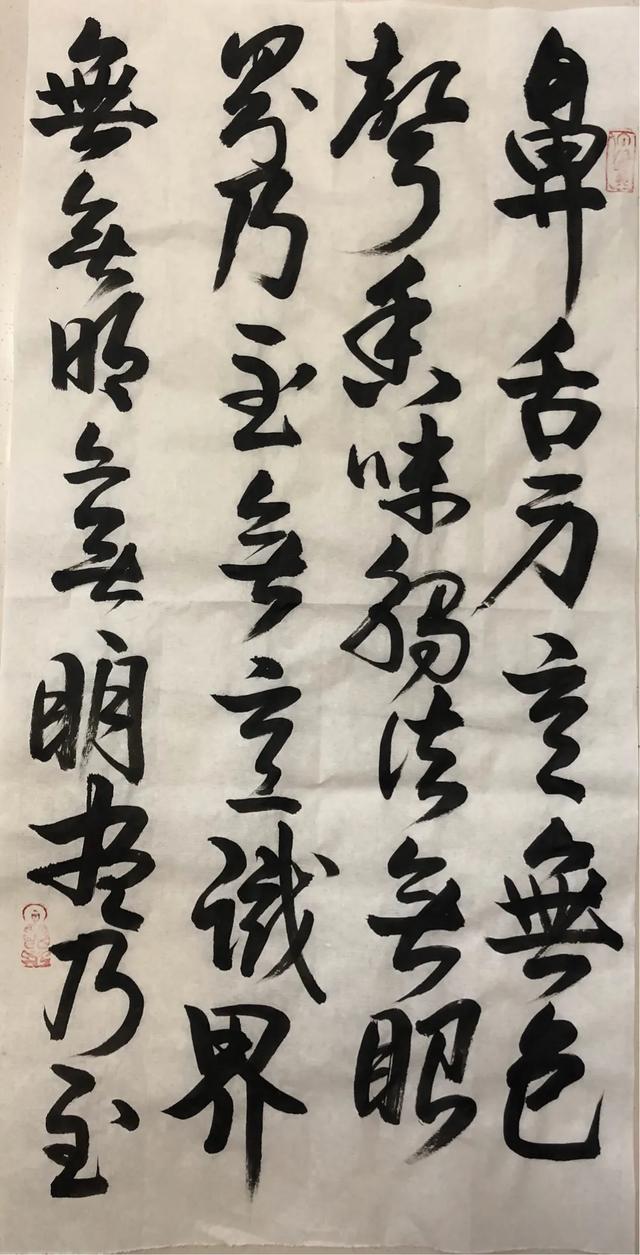 鼻舌身意無色
聲香味觸法無眼
界乃至無意識界
無無明亦無無明盡乃至